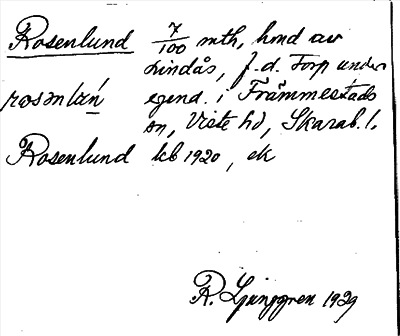 Rosenlund 7/100 mth, hmd av
Lindås, f.d. Torp under
rosənlán egend. i Främmestads
sn, Viste hd, Skarab. l.
Rosenlund kb 1920, ek
R. Ljunggren 1929